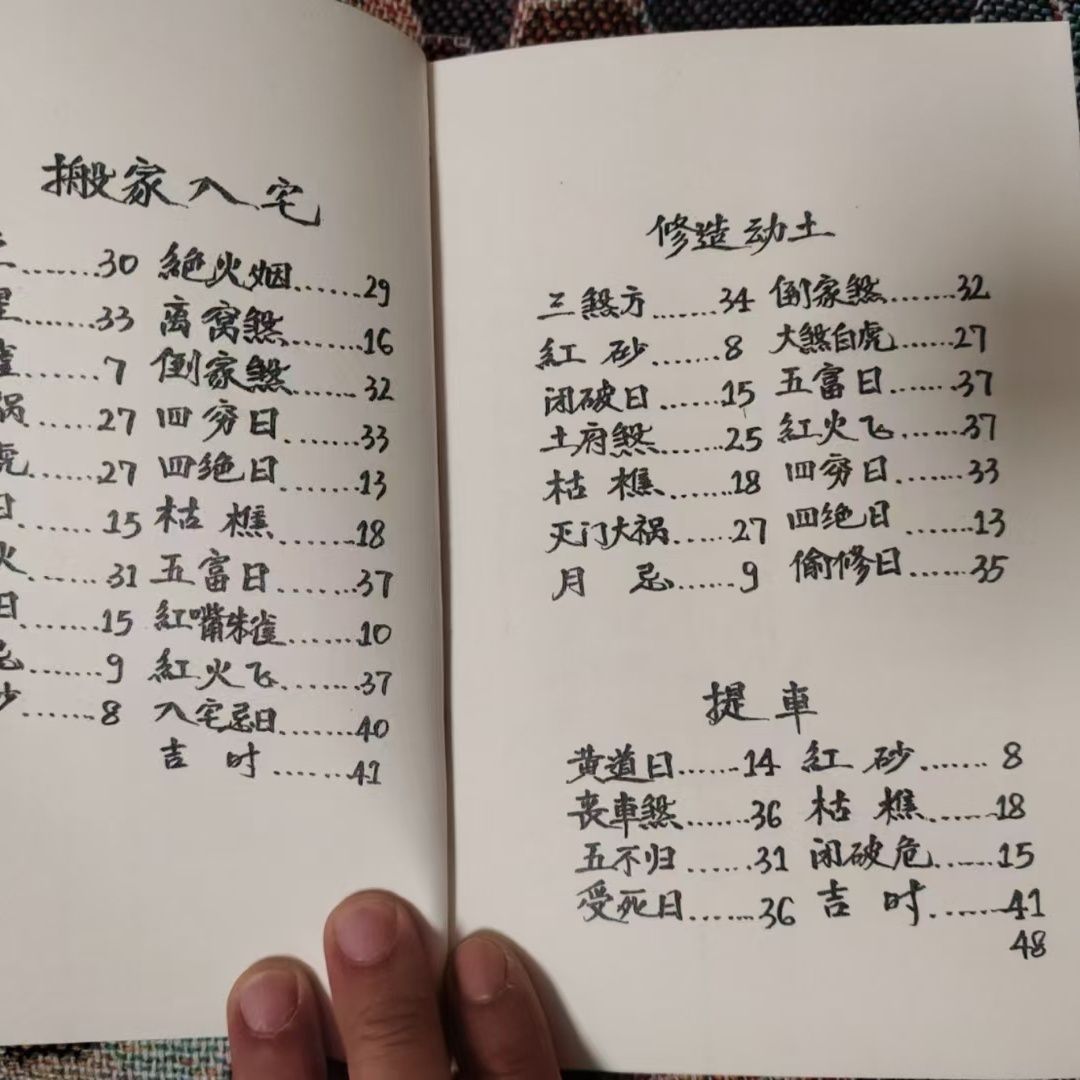 搬家入宅
30 絕火烟......29
33 离窝煞......16
7 倒家煞......32
祸......27 四穷日......33
虎......27 四绝日......13
日......15 枯樵......18
火......31 五富日......37
日......15 紅嘴朱雀......10
忌......9 紅火飞......37
砂......8 入宅忌日......40
吉时......41
修造动土
三煞方......34 倒家煞......32
紅砂......8 大煞白虎......27
闭破日......15 五富日......37
土府煞......25 紅火飞......37
枯樵......18 四穷日......33
灭门大祸......27 四绝日......13
月忌......9 偷修日......35
提車
黄道日......14 紅砂......8
丧車煞......36 枯樵......18
五不归......31 闭破危......15
受死日......36 吉时......41
48